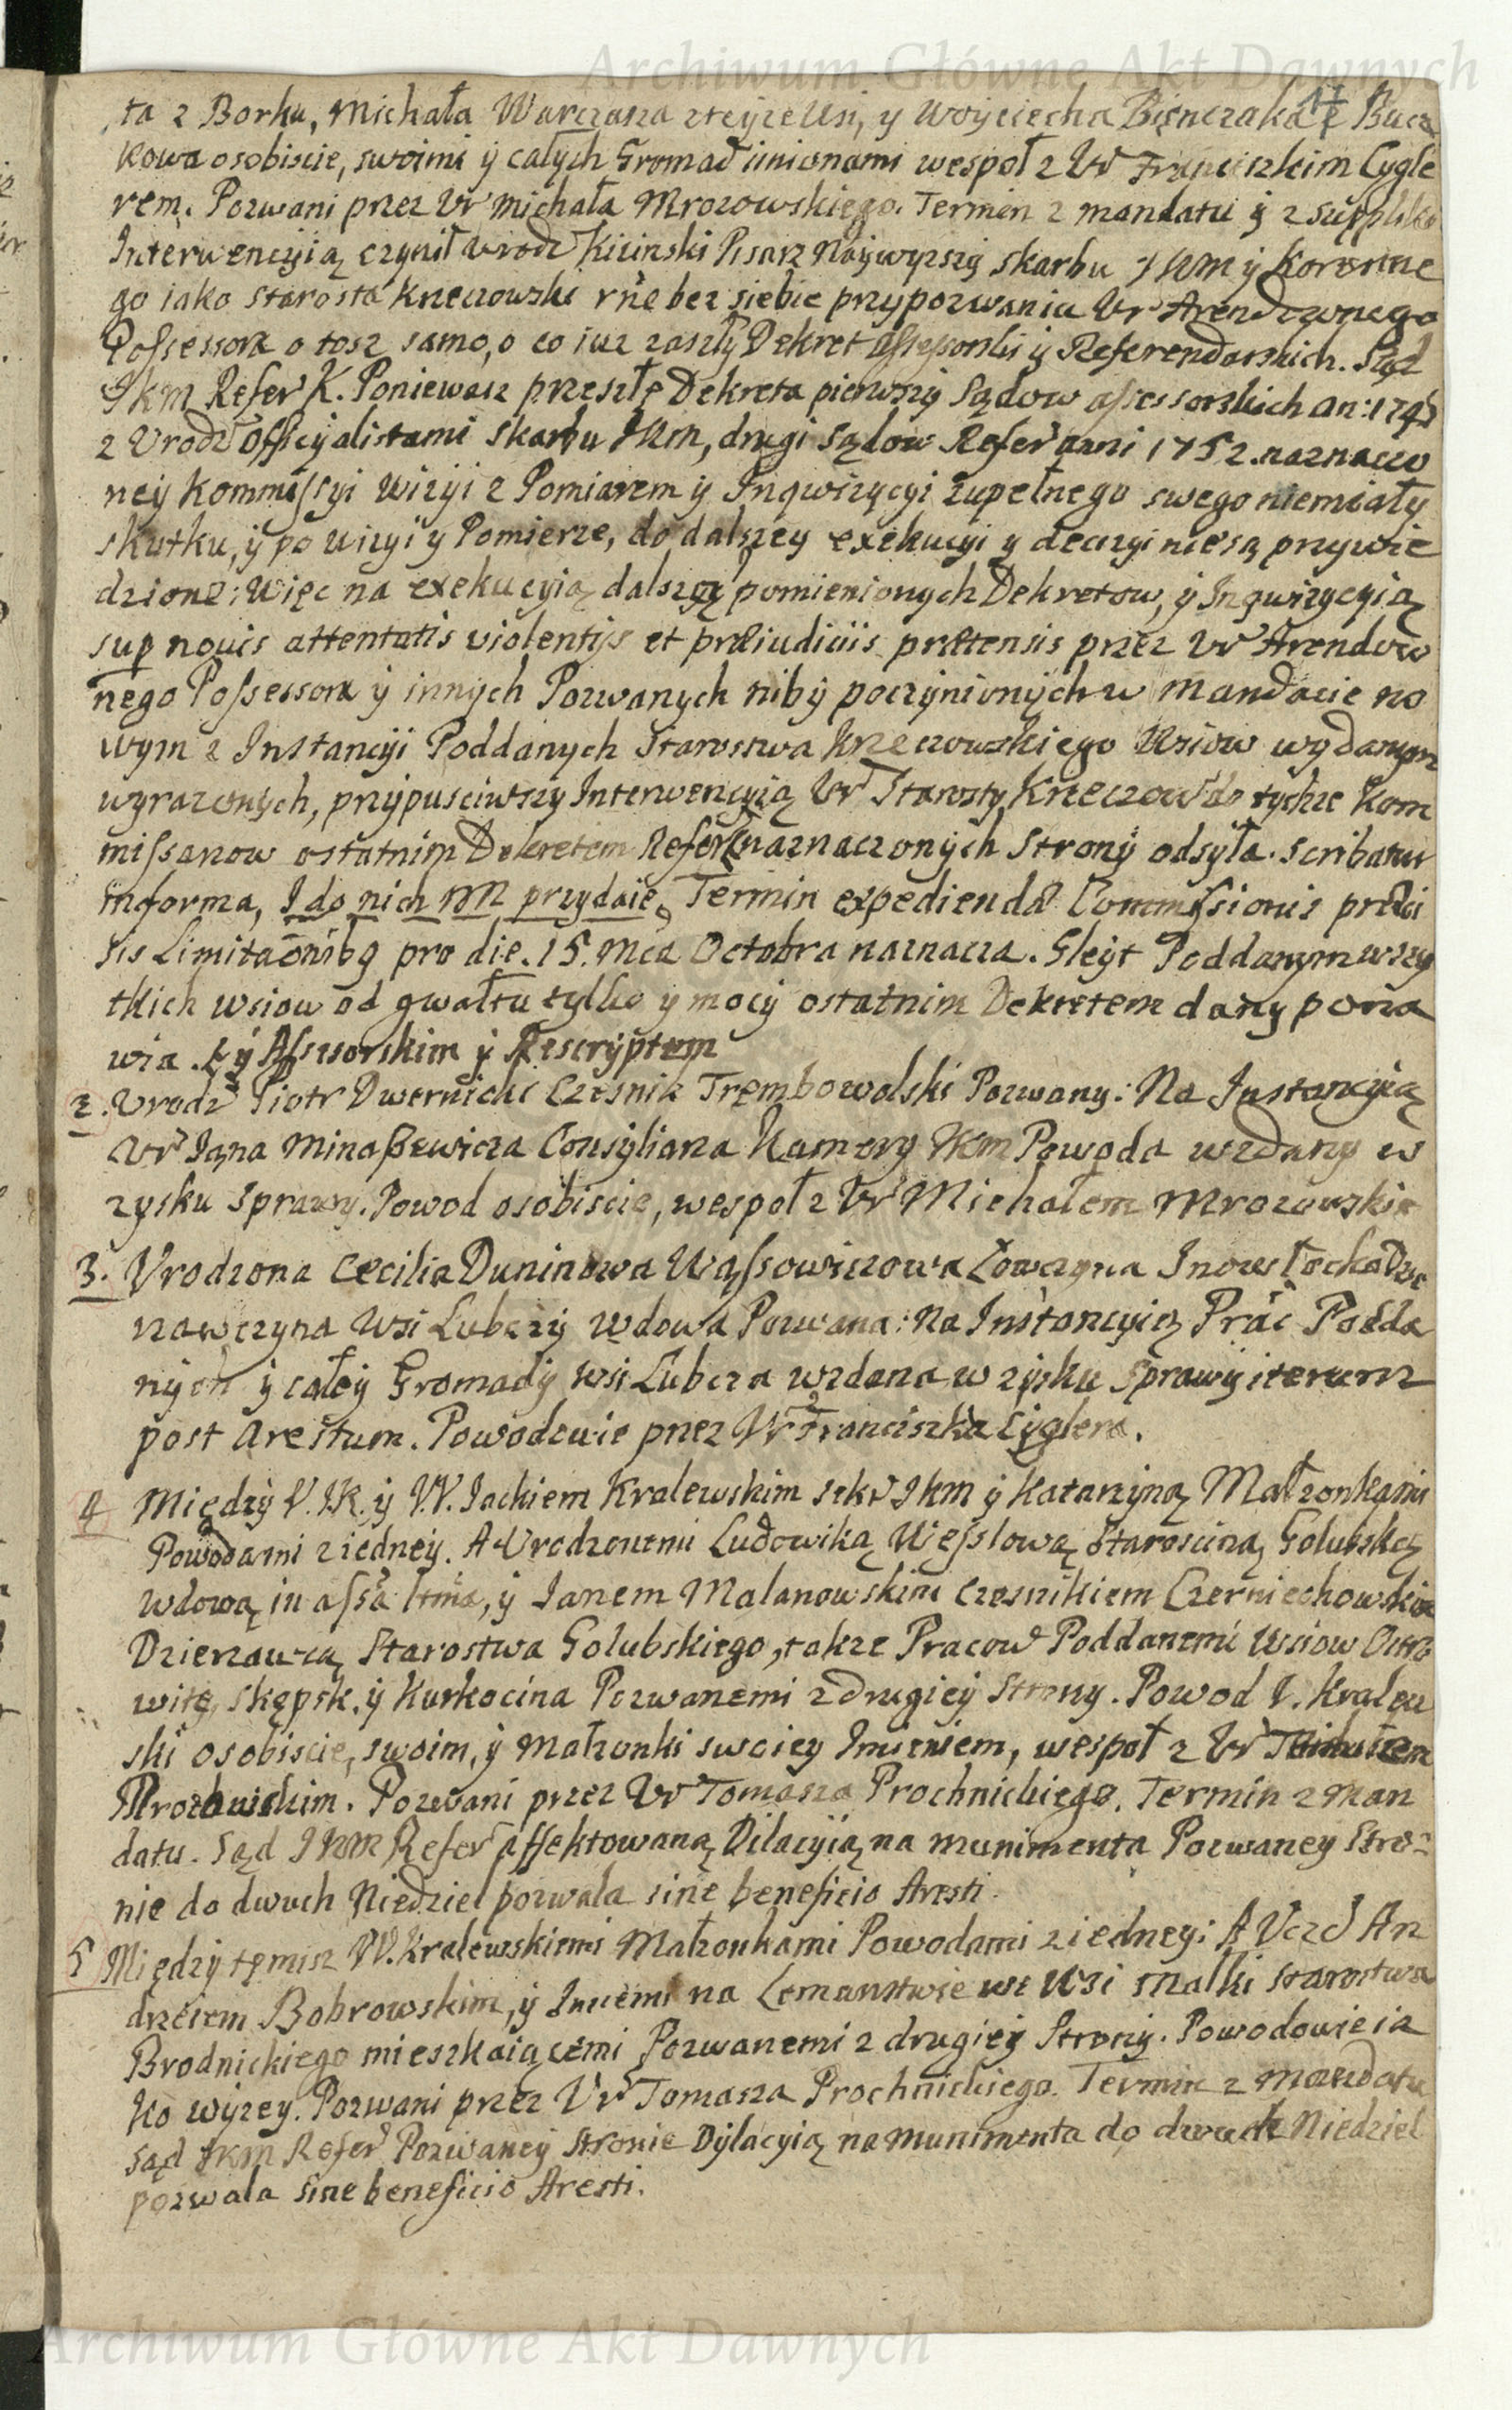 Archiwum Główne Akt Dawnych
ta z Borku, Michała Warczasza z teyze Wsi, y Woyciecha Bięnczaka z Bucz
kowa osobiscie, swoimi y całych Gromad imionami wespoł z Ur Franciszkiem Cygle
rem. Pozwani przez Ur Michała Mrozowskiego. Termin z mandatu y z supplik
Interwencyią czynił Urodz Kicinski Pisarz Naywyzszy skarbu JKM y Koronne
go iako Starosta Krzeczowski rñe bez siebie przypozwania Ur Arendownego
Possessora o tosz samo, o co iuz zaszły Dekret Assessorski y Referendarskich. Sąd
JKM Refer K. Poniewasz przeszłe Dekreta pierwszy Sądow assessorskich an: 174
z Urodz Officyalistami skarbu JKM, drugi sądow Refer anni 1752. naznaczo
ney Kommissyi Wizyi z Pomiarem y Inqwizycyi zupełnego swego niemiały
skutku, y po wizyi y Pomierze, do dalszey exekucyi y decizyi nie są przywie
dzione; Więc na exekucyią dalszą pomienionych Dekretow, y Inqwizycyią
sup novis attentatis violentijs et præiudiciis prætensis przez Ur Arendow
nego Possessora y innych Pozwanych niby poczynionych w Mandacie no
wym z Instancyi Poddanych Starostwa Krzeczowskiego Wsiow wydanym
wyrazonych, przypusciwszy Interwencyią Ur Starosty Krzeczow do tychze Kom
missarzow ostatnim Dekretem Refer naznaczonych Strony odsyła. Scribatur
in forma, I do nich M przydaie, Termin expedienda Commissionis præci
sis Limitaōnibq pro die. 15. Mca Octobra naznacza. Gleyt Poddanym wszy
tkich wsiow od gwałtu tylko y mocy ostatnim Dekretem dany pona
wia. y Assessorskim y Rescryptem
2. Urodz Piotr Dwernicki Czesnik Trembowolski Pozwany: Na Instancyią
Ur Jana Minasewicza Consyliarza Kamery JKM Powoda wzdany w
zysku sprawy. Powod osobiscie, wespoł z Ur Michałem Mrozowskim
3. Urodzona Cecilia Duninowa Wąssowiczowa Łowczyna Inowłocka Dzie
rzawczyna Wsi Lubczy Wdowa Pozwana: Na Instancyią Prac Podda
nych y całey Gromady wsi Lubcza wzdana w zysku Sprawy iterum
post Arestum. Powodowie przez Ur Franciszka Cyglera.
4 Między U. JK. y W. Jackiem Kralewskim sekr JKM y Katarzyną Małzonkami
Powodami z iedney. A Urodzonemi Ludowiką Wesslową Starościną Golubską
Wdową in assa ltma, y Janem Malanowskim Czesnikiem Czerniechowskim
Dzierzawcą Starostwa Golubskiego, takze Pracow Poddanemi Wsiow Ostro
wite, skępsk, y Kurkocina Pozwanemi z drugiey Strony. Powod U. Kralew
ski osobiscie, swoim, y Małzonki swoiey Imieniem, wespoł z Ur Michałem
Mrozowskim. Pozwani przez Ur Tomasza Prochnickiego. Termin z Man
datu. Sąd JKM Refer affektowaną Dilacyią na munimenta Pozwaney Stro-
nie do dwuch Niedziel pozwala sine beneficio Aresti.
5 Między temisz W. Kralewskiemi Małzonkami Powodami z iedney: A Uczd An
drzeiem Bobrowskim, y Innemi na Lemanstwie we Wsi Malki starostwa
Brodnickiego mieszkaiącemi Pozwanemi z drugiey Strony. Powodowie ia
ko wyzey. Pozwani przez Ur Tomasza Prochnickiego. Termin z Mandatu
Sąd JKM Refer Pozwaney Stronie Dylacyią na munimenta do dwuch Niedziel
pozwala sine beneficio Aresti.
Archiwum Główne Akt Dawnych